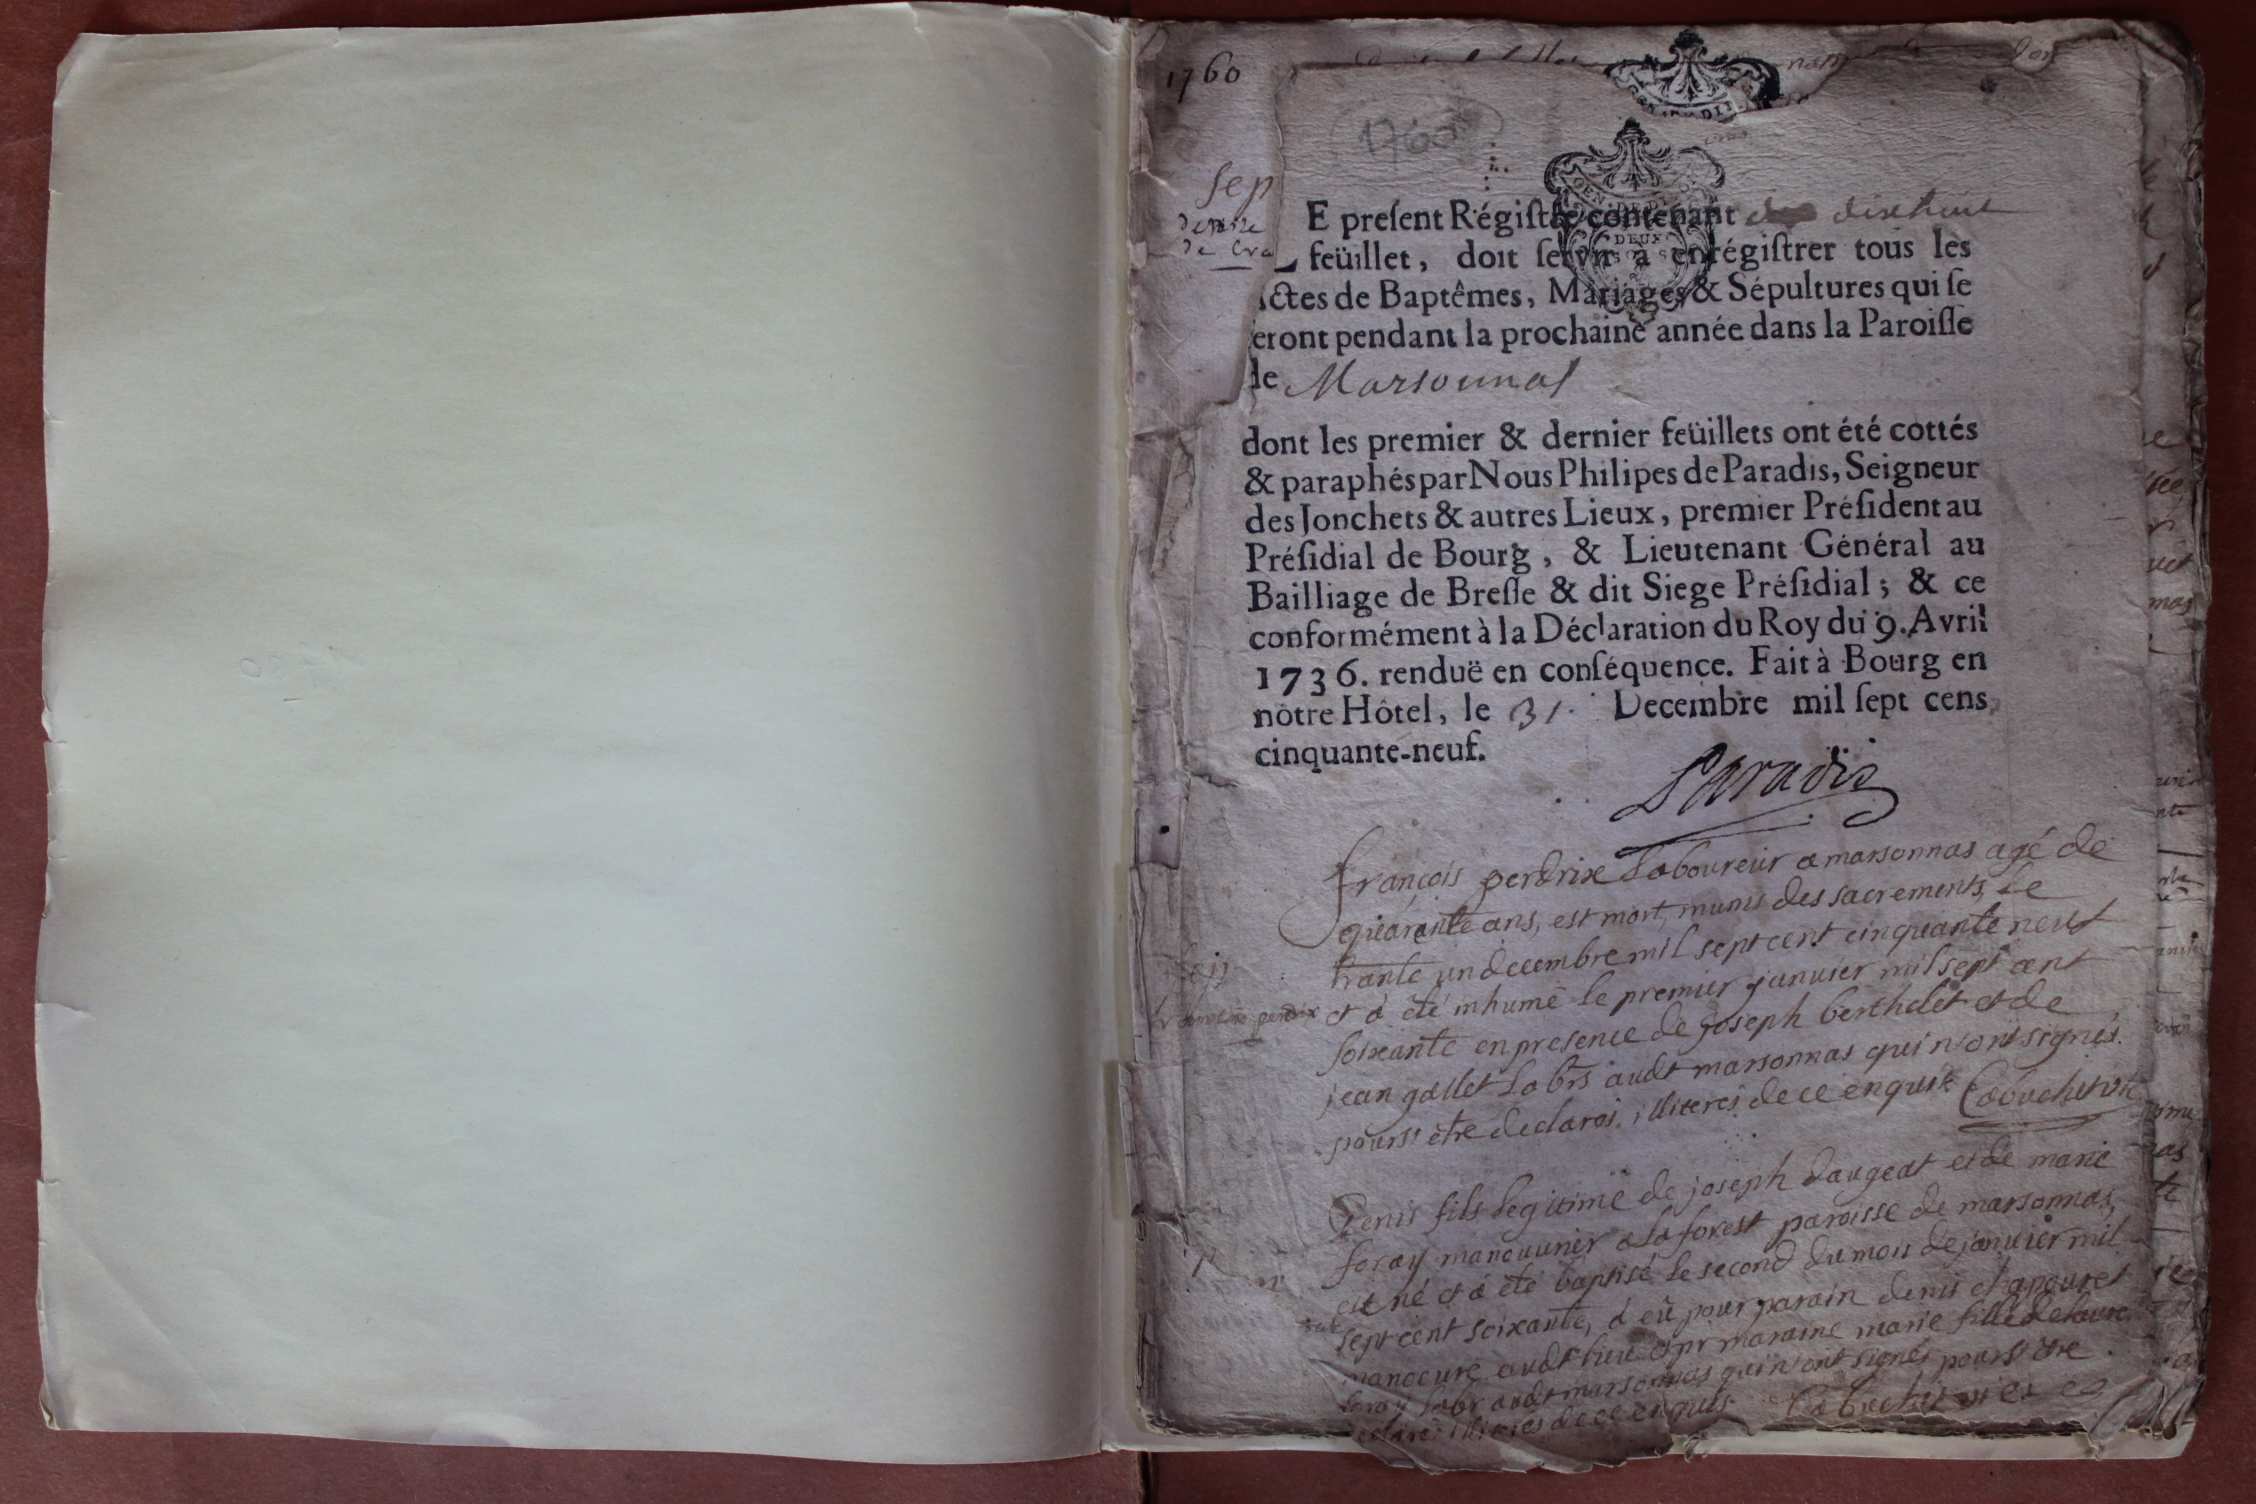 1760
1760
Sep
E preſent Régiſtre contenant dixhuit
feüillet, doit ſervir à enrégiſtrer tous les
Actes de Baptêmes, Mariages & Sépultures qui ſe
feront pendant la prochaine année dans la Paroiſſe
de Marsonnas
dont les premier & dernier feüillets ont été cottés
& paraphés par Nous Philipes de Paradis, Seigneur
des Jonchets & autres Lieux, premier Préſident au
Préſidial de Bourg, & Lieutenant Général au
Bailliage de Breſſe & dit Siege Préſidial; & ce
conformément à la Déclaration du Roy du 9. Avril
1736. renduë en conſéquence. Fait à Bourg en
nôtre Hôtel, le 31. Decembre mil ſept cens
cinquante-neuf.
Paradis
françois perdrix laboureur a marsonnas agé de
quarante ans, est mort, munis des sacrements, le
trante un decembre mil sept cent cinquante neuf
et a été inhumé le premier janvier mil sept cent
soixante en presence de joseph berthelet et de
jean gallet labrs audt marsonnas qui n'ont signés
pour s'être declarés illiterés de ce enquis
Sep
françois perdrix
Denis fils legitime de joseph daugeat et de marie
foray manouvrier a la forest paroisse de marsonnas,
est né et a été baptisé le second du mois de janvier mil
sept cent soixante, a eû pour parain denis chapouret
manoeuvre audt lieu et pr maraine marie fille de
foray labr audt marsonnas qui n'ont signés pour s'être
declarés illiterés de ce enquis